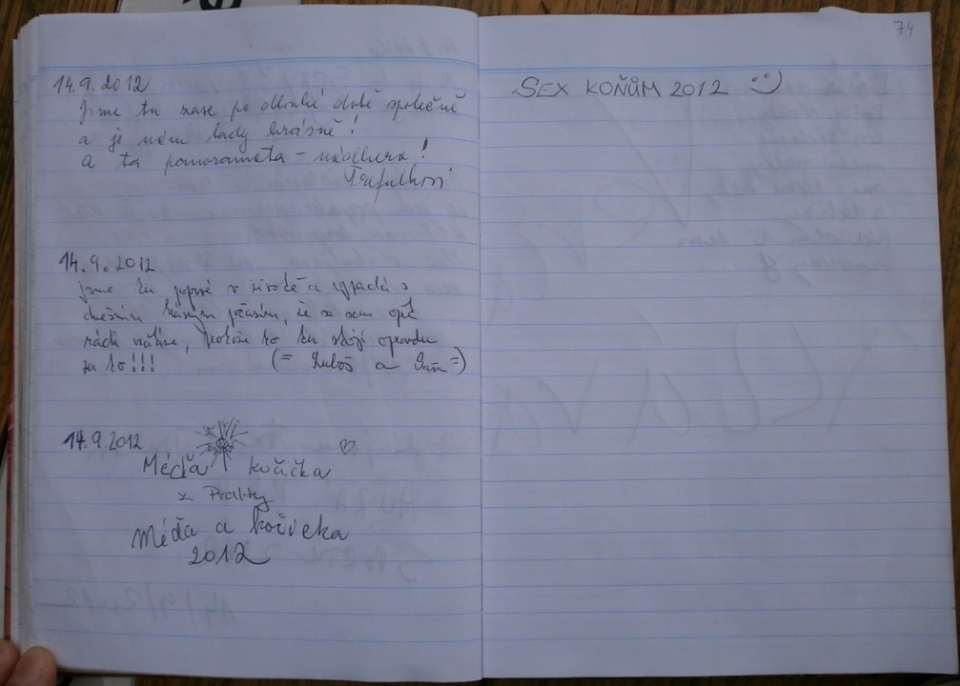 14.9.2012
Jsme tu zase po dlouhé době společně
a je nám tady krásně!
a ta panoramata - nádhera!
14.9.2012
Jsme tu poprvé v životě a vypadá s
dnešním krásným počasím, že se sem opět
rádi vrátíme, protože to tu stojí opravdu
za to!!! (= Luboš a =)
14.9.2012
Méďa kočička
z Prahy
Méďa a kočička
2012
74
SEX KOŇŮM 2012